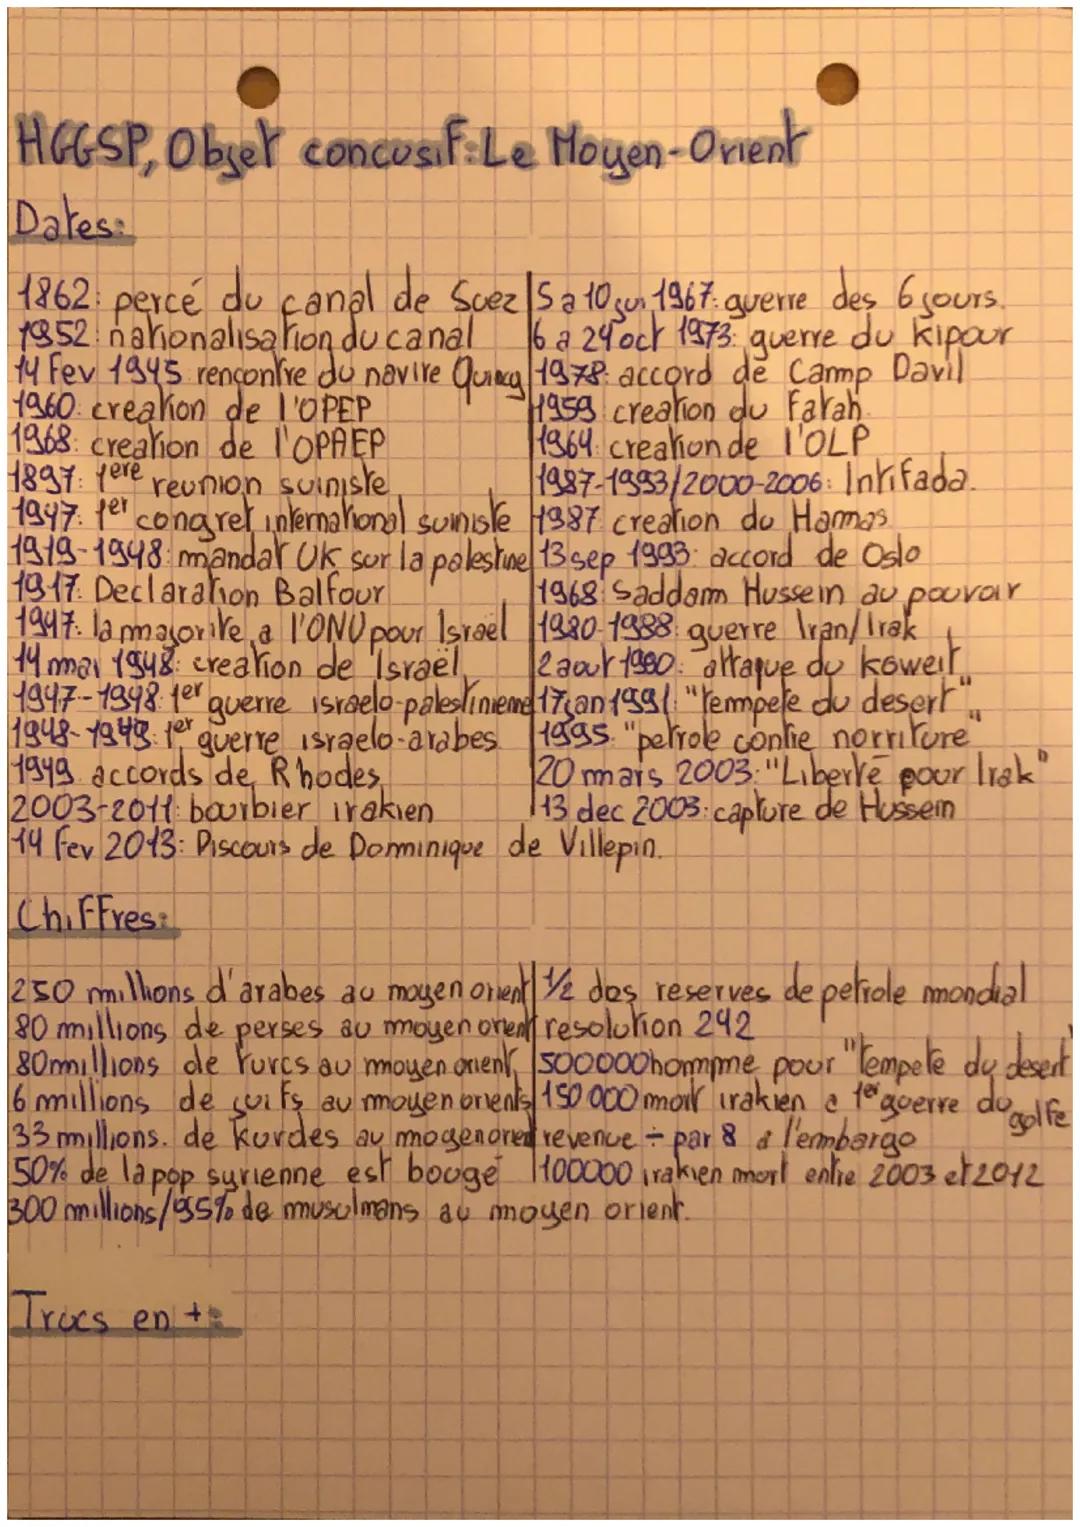 HGGSP, Objet concusif: Le Moyen-Orient
Dates:
1862: percé du canal de Suez
1952: nationalisation du canal
14 Fev 1945 rençontre du navire Quincy
1960: creation de l'OPEP
1968: creation de l'OPAEP
1897: 1ere reunion suiniste
1947: 1er congret international suiniste
1919-1948: mandat UK sur la palestine
1917: Declaration Balfour
1947: la majorite a l'ONU pour Israël
14 mai 1948: creation de Israël
1947-1948 1er guerre israelo-palestinienne
1948-1949: 1er guerre israelo-arabes
1949 accords de Rhodes
2003-2011: bourbier irakien
14 fev 2013: Discours de Dominique de Villepin.
5 a 10 jui 1967: guerre des 6 jours.
6 a 24 oct 1973: guerre du kipour
1978: accord de Camp Davil
1959 creation du Fatah
1964: creation de l'OLP
1987-1993/2000-2006: Intifada.
1987 creation du Hamas
13 sep 1993: accord de Oslo
1968 Saddam Hussein au pouvoir
1980-1988: guerre Iran/Irak
2 aout 1990: attaque du koweit
17 jan 1991: "tempete du desert"
1995 "petrole contre norriture"
20 mars 2003: "Liberté pour Irak"
13 dec 2003: capture de Hussein
Chiffres:
250 millions d'arabes au moyen orient
80 millions de perses au moyen orient
80 millions de turcs au moyen orient
6 millions de juifs au moyen orients
33 millions. de kurdes au moyen orient
50% de la pop syrienne est bougé
300 millions/95% de musulmans au moyen orient.
1/2 des reserves de petrole mondial
resolution 242
500000 homme pour "tempete du desert
150 000 mort irakien a 1er guerre du golfe
revenue ÷ par 8 a l'embargo
100000 irakien mort entre 2003 et 2012
Trucs en +: